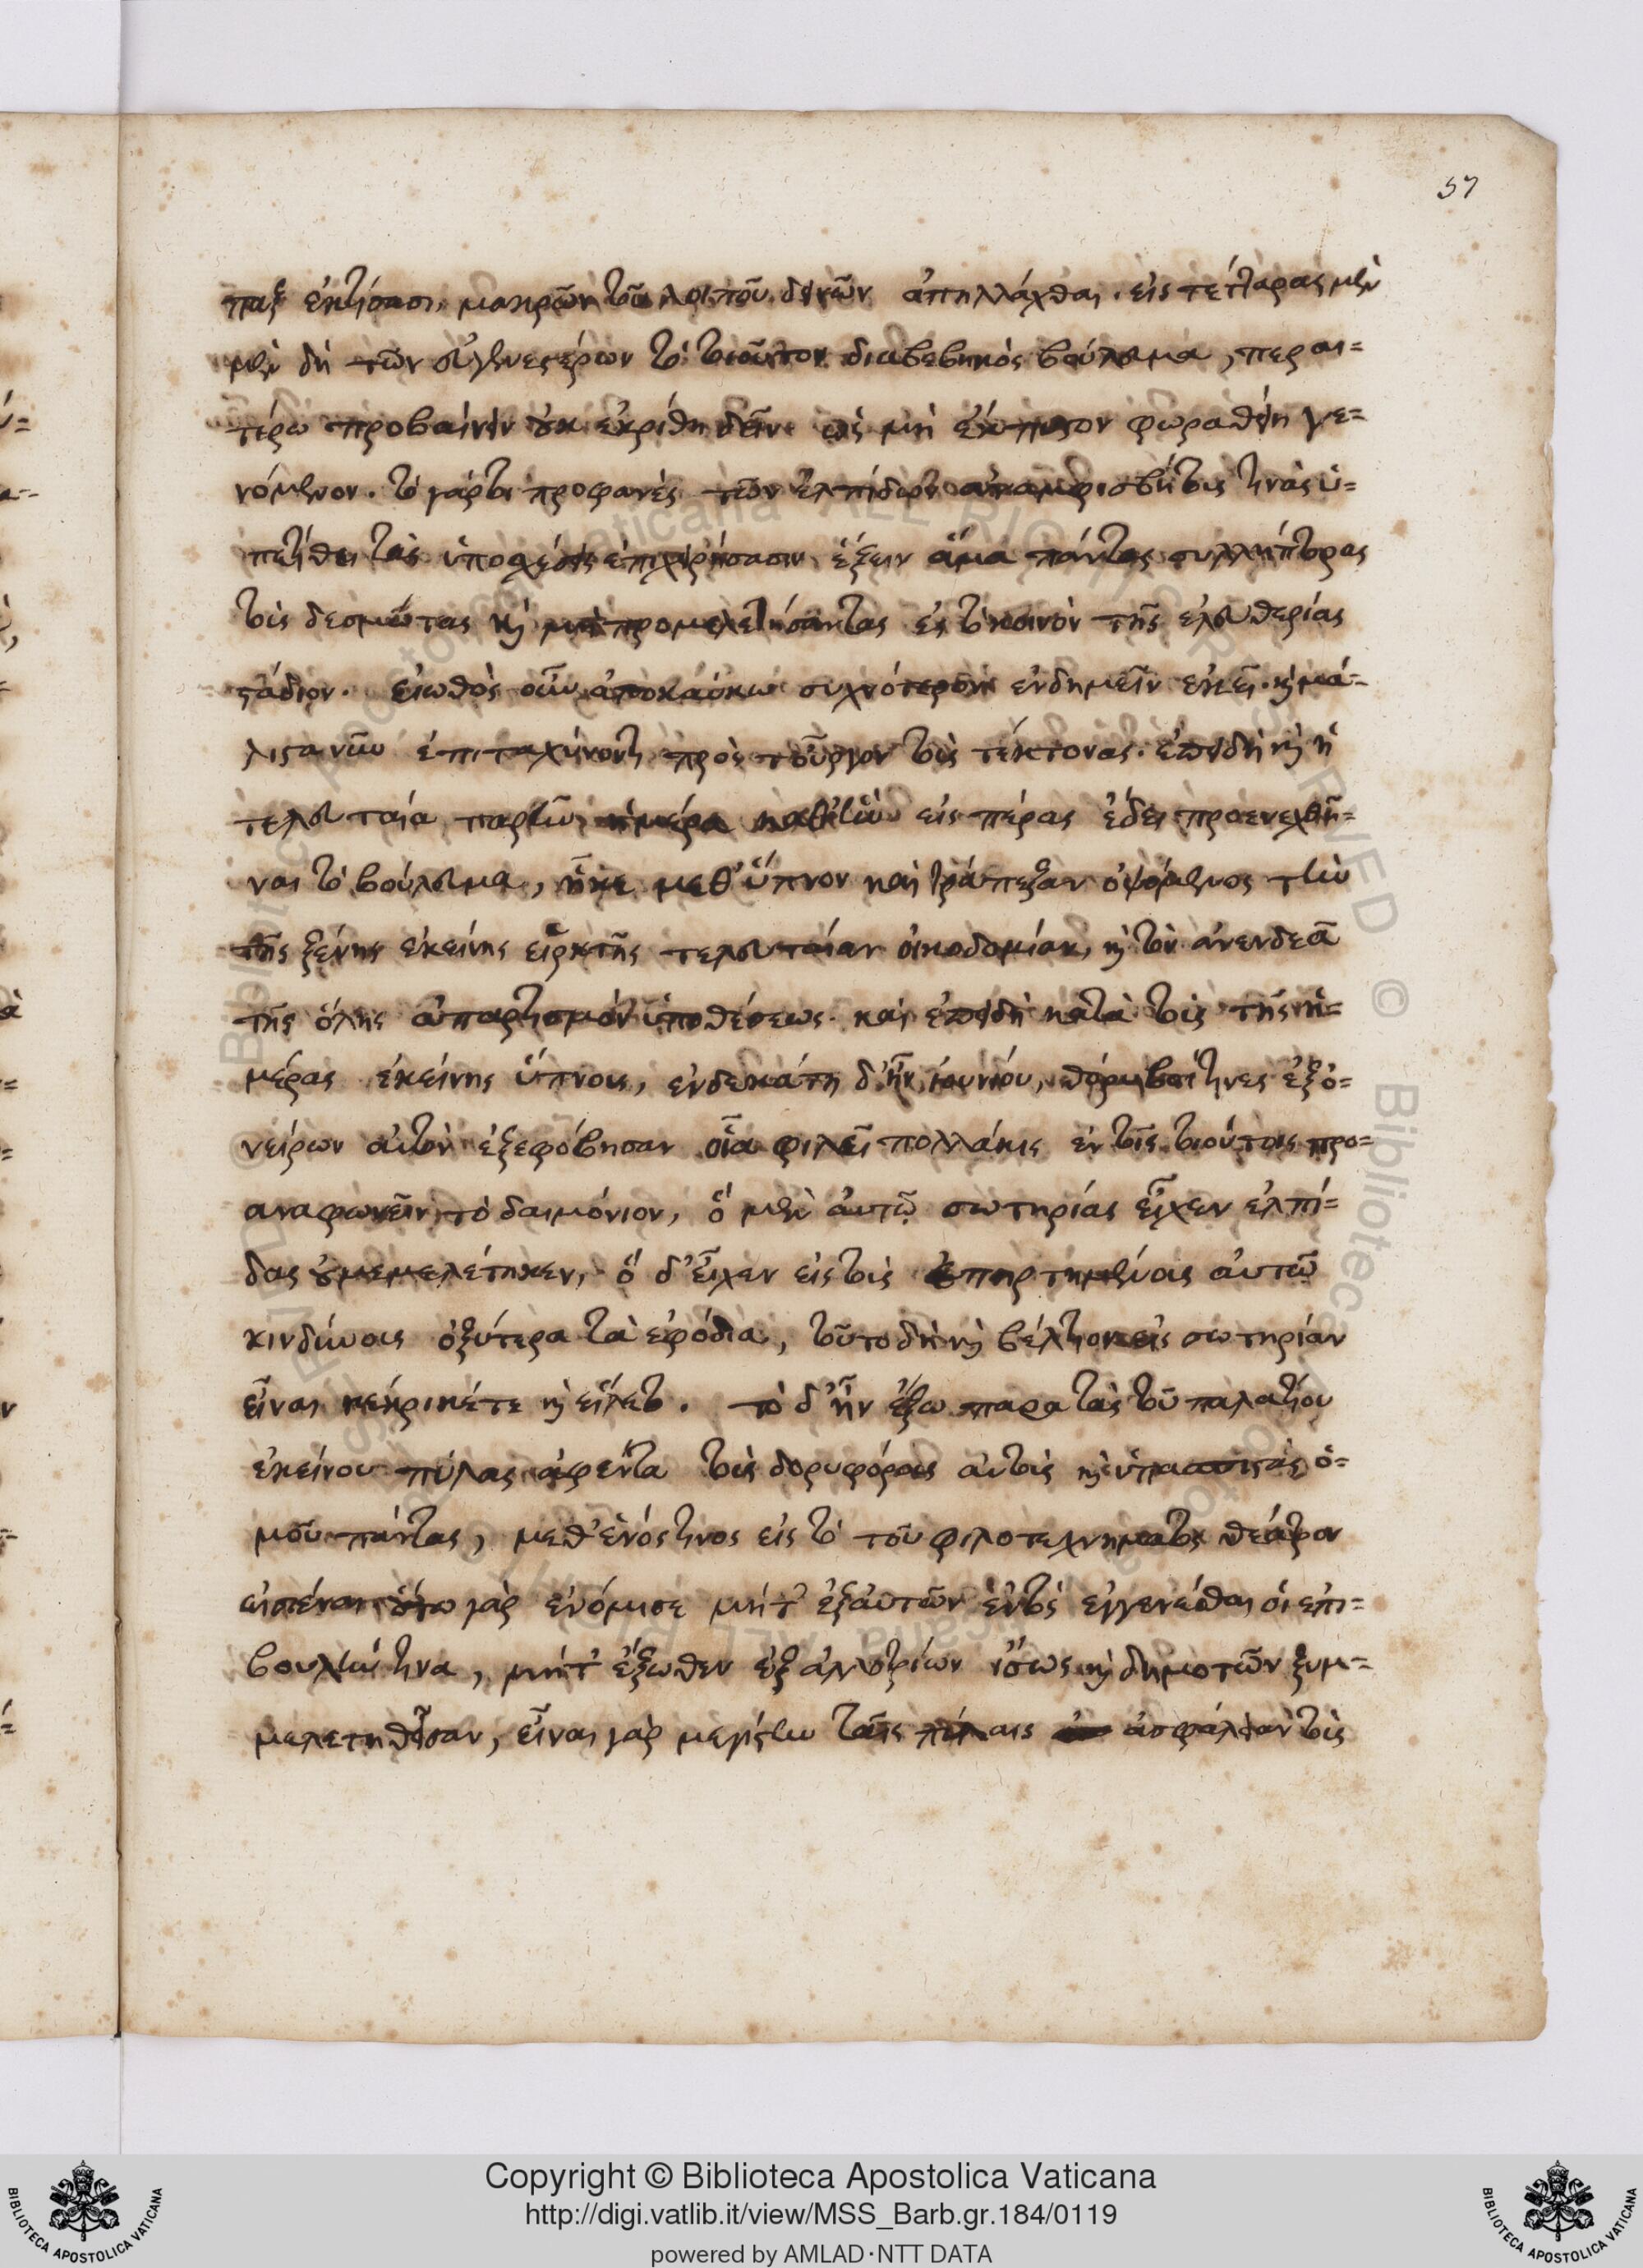 57
παξ ἐκτίσασι, μακρῶν τοῦ λοιποῦ δεινῶν ἀπηλλάχθαι. εἰς τέτταρας μὲν
μὲν δὴ τῶν συγγενεστέρων τὸ τοιοῦτον διαβεβηκὸς βούλευμα, περαι=
τέρω προβαίνειν οὐκ ἐκρίθη δεῖν ὡς μὴ ἔκπυστον φωραθείη γε=
νόμενον. τὸ γάρ τοι προφανὲς τῶν ἐλπίδων ἀναμφισβήτους τινὰς ὑ=
πετίθει τὰς ὑποσχέσεις ἐπιχειρήσασιν ἕξειν ἅμα πάντας συλλήπτορας
τοὺς δεσμώτας καὶ μὴ προμελετήσαντας ἐς τὸ κοινὸν τῆς ἐλευθερίας
στάδιον. εἰωθὸς οὖν ἀποκαύκω συχνότερον ἐνδημεῖν ἐκεῖ. καὶ μά=
λιστα νῦν ἐπιταχύνοντι πρὸς τοὖργον τοὺς τέκτονας. ἐπειδὴ καὶ ἡ
τελευταία παρῆν ἡμέρα καθ' ἣν εἰς πέρας ἔδει προενεχθῆ=
ναι τὸ βούλευμα, ἧκε μεθ' ὕπνον καὶ τράπεζαν ὀψόμενος τὴν
τῆς ξένης ἐκείνης εἱρκτῆς τελευταίαν οἰκοδομίαν, καὶ τὸν ἀνενδεᾶ
τῆς ὅλης ἀπαρτισμὸν ὑποθέσεως. καὶ ἐπειδὴ κατὰ τοὺς τῆς ἡ=
μέρας ἐκείνης ὕπνους, ἑνδεκάτη δ' ἦν ἰουνίου, θόρυβοί τινες ἐξ ὀ=
νείρων αὐτὸν ἐξεφόβησαν οἷα φιλεῖ πολλάκις ἐν τοῖς τοιούτοις προ=
αναφωνεῖν τὸ δαιμόνιον, ὃ μὲν αὐτῷ σωτηρίας εἶχεν ἐλπί=
δας οὐ μεμελέτηκεν, ὃ δ' εἶχεν εἰς τοὺς ἐπηρτημένους αὐτῷ
κινδύνους ὀξύτερα τὰ ἐφόδια, τοῦτο δὴ καὶ βέλτιον εἰς σωτηρίαν
εἶναι κέκρικέ τε καὶ εἵλετο. τὸ δ' ἦν ἔξω παρὰ τὰς τοῦ παλατίου
ἐκείνου πύλας ἀφέντα τοὺς δορυφόρους αὐτοὺς καὶ ὑπασπιστὰς ὁ=
μοῦ πάντας, μεθ' ἑνός τινος εἰς τὸ τοῦ φιλοτεχνήματος θέατρον
εἰσιέναι οὕτω γὰρ ἐνόμισε μήτ' ἐξ αὐτῶν ἐντὸς ἐγγενέσθαι οἱ ἐπι=
βουλήν τινα, μήτ' ἔξωθεν ἐξ ἀλλοτρίων ἴσως καὶ δημοτῶν ξυμ=
μελετηθεῖσαν, εἶναι γὰρ μεγίστην ταῖς πύλαις ἀσφάλειαν τοὺς
Copyright © Biblioteca Apostolica Vaticana
http://digi.vatlib.it/view/MSS_Barb.gr.184/0119
powered by AMLAD·NTT DATA